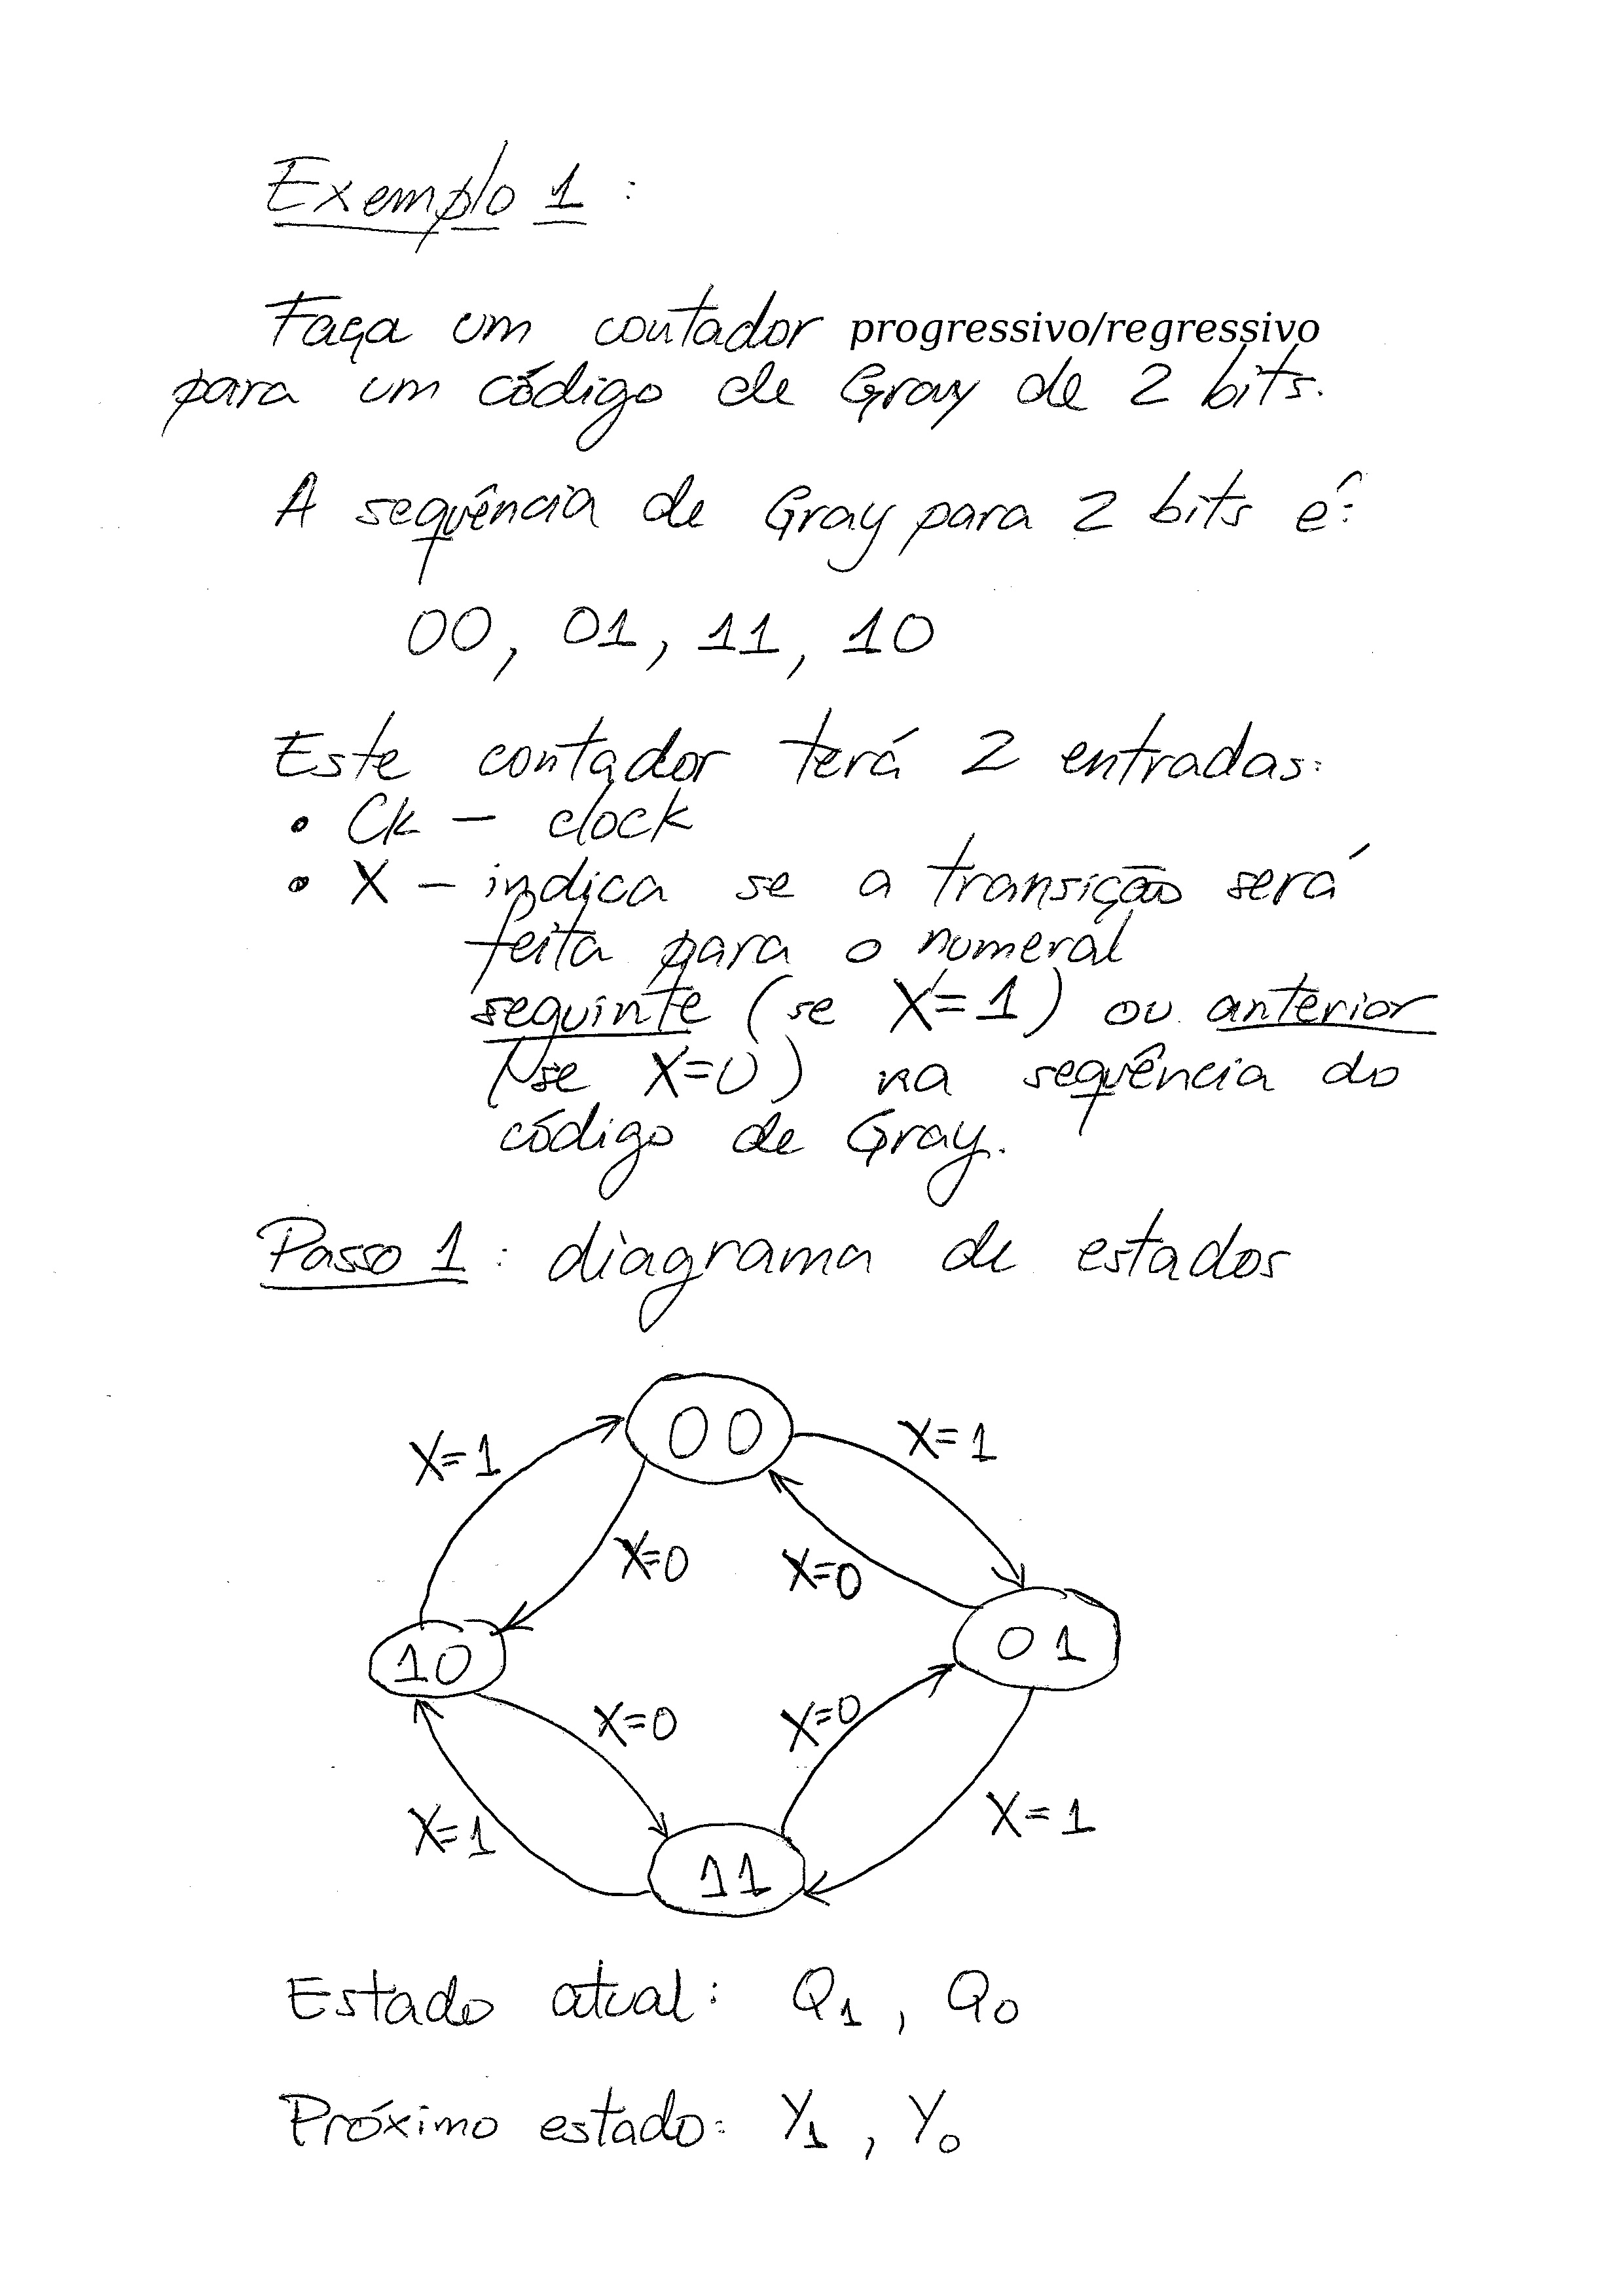 Exemplo 1:
Faça um contador progressivo/regressivo
para um código de Gray de 2 bits.
A sequência de Gray para 2 bits é:
00, 01, 11, 10
Este contador terá 2 entradas:
• Ck – clock
• X – indica se a transição será
feita para o numeral
seguinte (se X=1) ou anterior
(se X=0) na sequência do
código de Gray.
Passo 1: diagrama de estados
00
X=1
X=1
X=0
X=0
10
01
X=0
X=0
X=1
X=1
11
Estado atual: Q1, Q0
Próximo estado: Y1, Y0